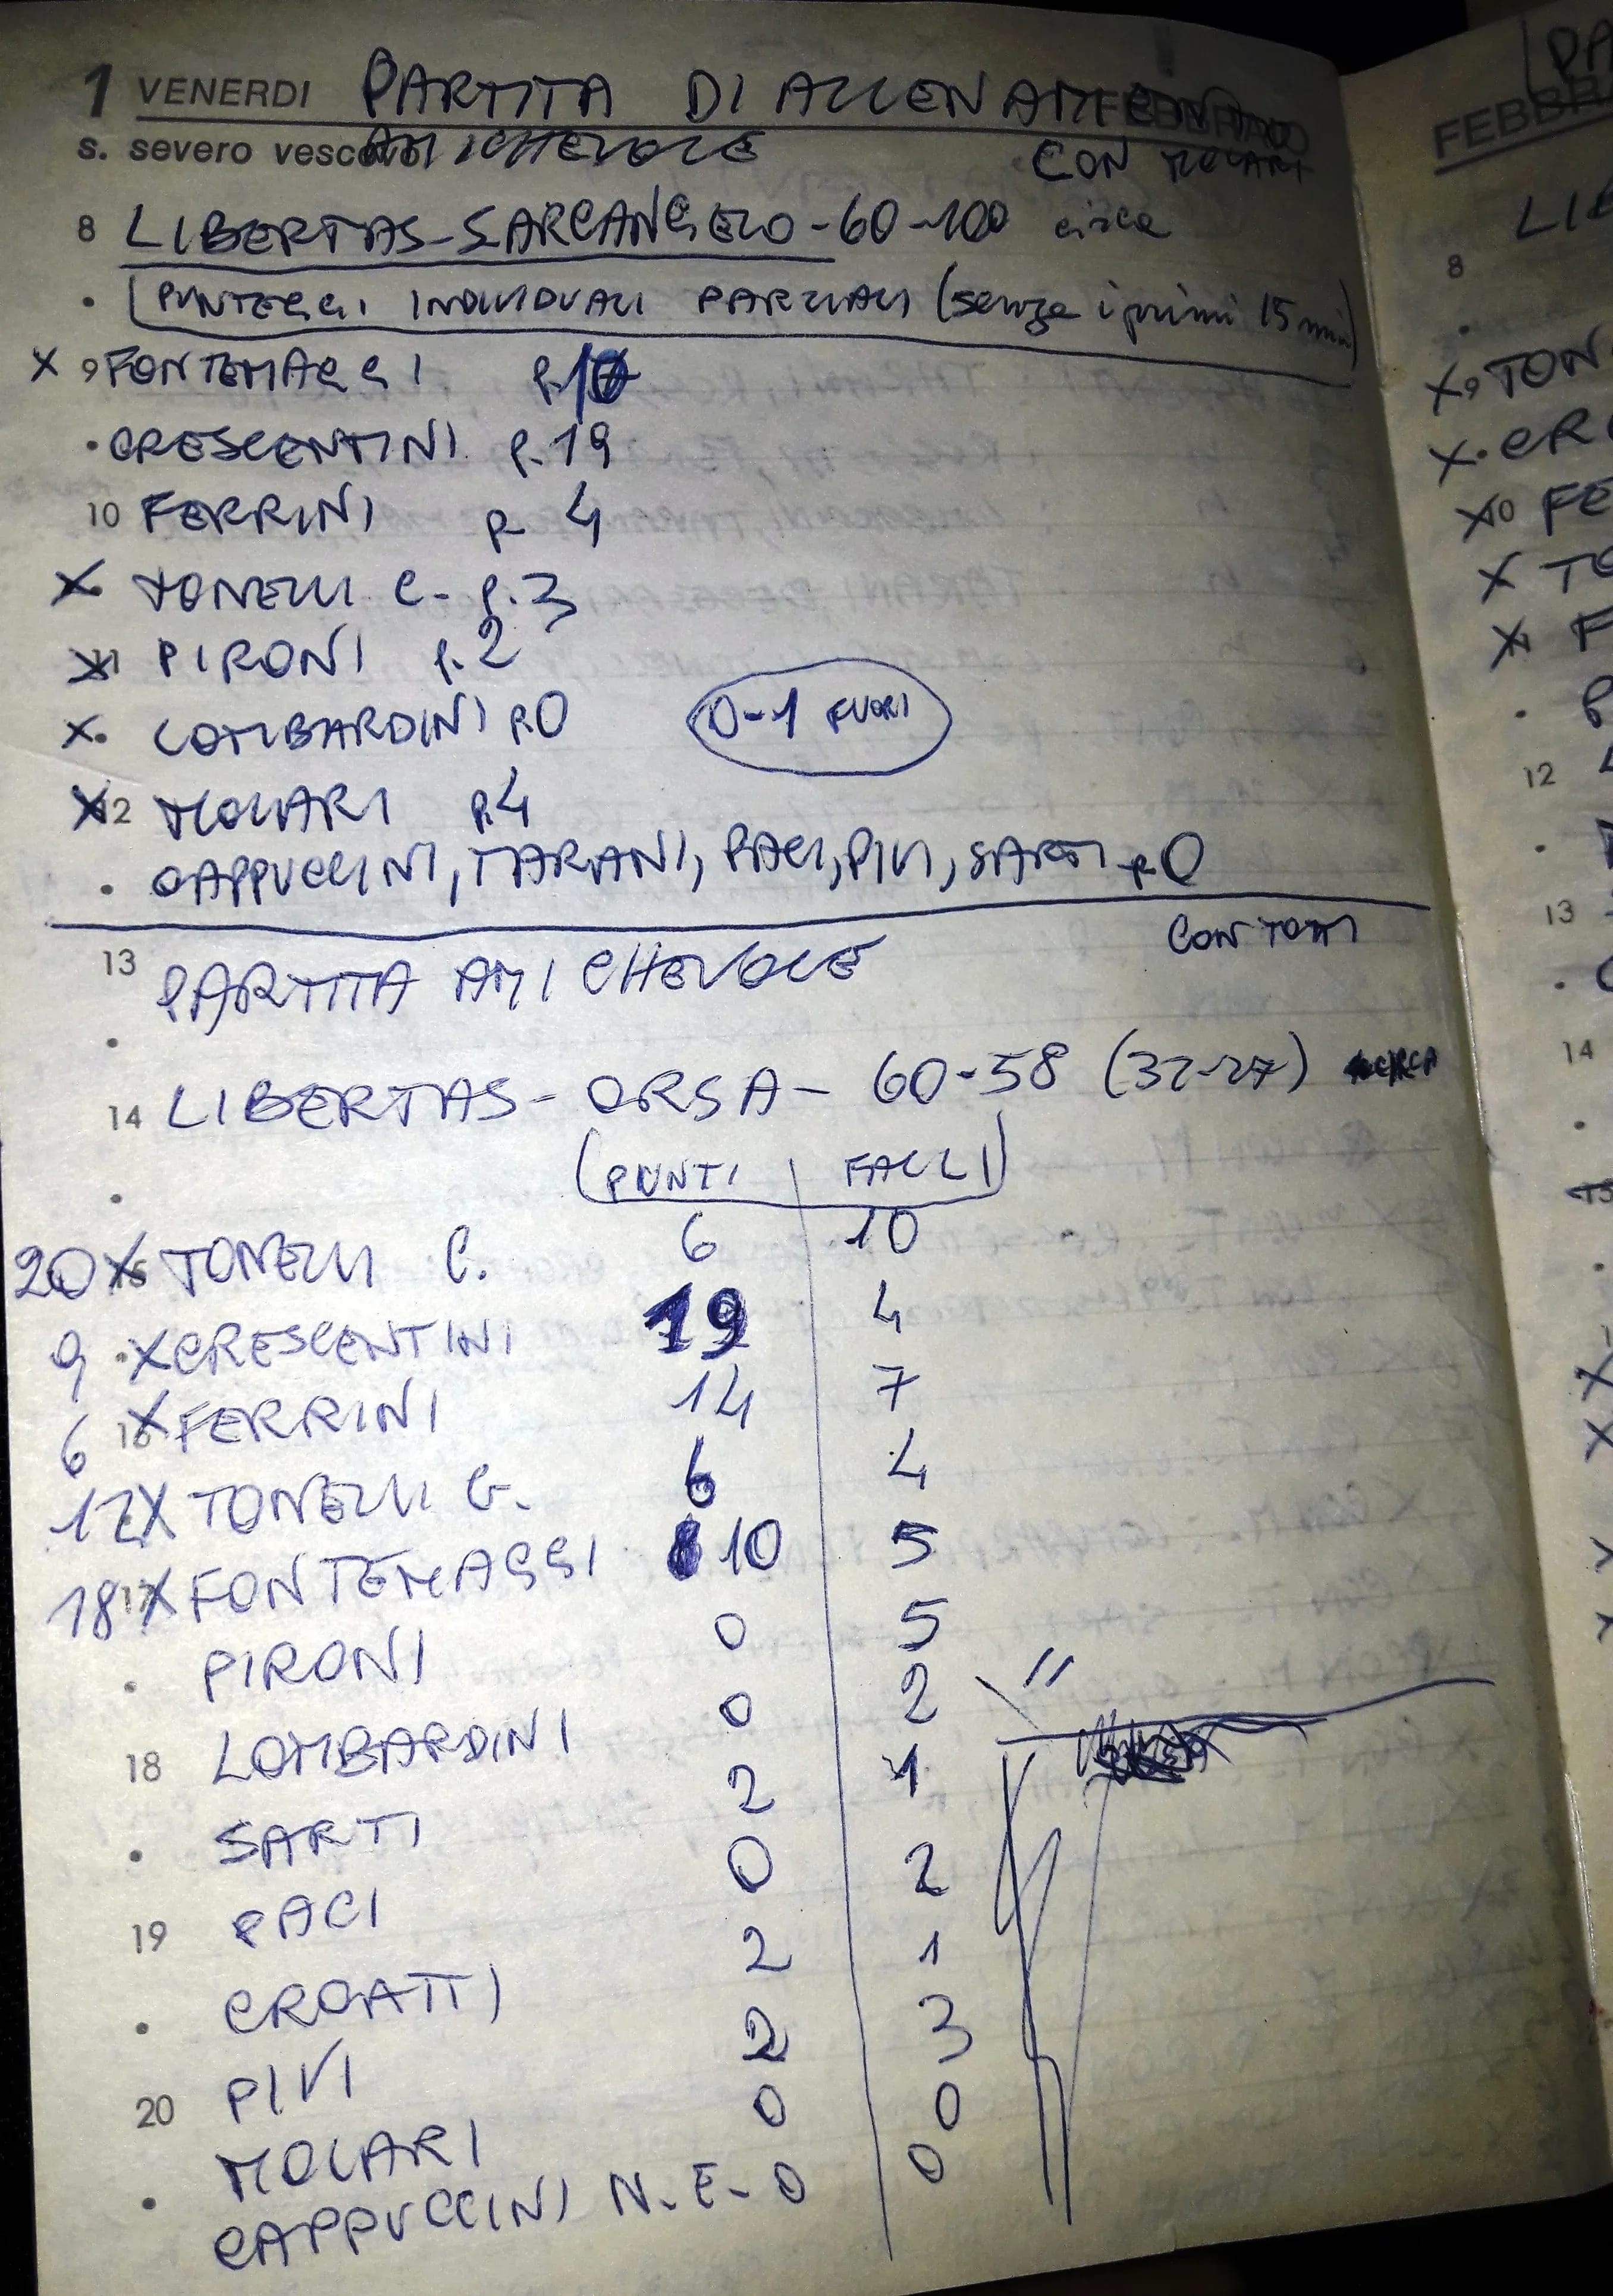 1 VENERDI PARTITA DI ALLENAMENTO FEBBRAIO
s. severo vescovo AMICHEVOLE CON MOLARI
8 LIBERTAS-SARCANGELO-60-100 circa
PUNTEGGI INDIVIDUALI PARZIALI (senza i primi 15 min)
X 9 FONTEMAGGI P.10
CRESCENTINI P.19
10 FERRINI P 4
X TONELLI C- P.3
X 11 PIRONI P.2
X LOMBARDINI P.0 0-1 FUORI
X 12 MOLARI P.4
CAPPUCCINI, TARANI, PACI, PIVI, SARTI P0
13 PARTITA AMICHEVOLE CON TOMI
14 LIBERTAS-ORSA- 60-58 (32-27) CIRCA
(PUNTI | FALLI)
20 X TONELLI C. 6 10
9 X CRESCENTINI 19 4
6 16 X FERRINI 14 7
12 X TONELLI G. 6 4
18 17 X FONTEMAGGI 10 5
PIRONI 0 5
18 LOMBARDINI 0 2
SARTI 2 1
19 PACI 0 2
CROATTI 2 1
20 PIVI 2 3
MOLARI 0 0
CAPPUCCINI N.E-0 0
FEBBRA
8 LIB
X 9 TON
X CR
X 10 FE
X TO
X 11 F
12
13
14
15